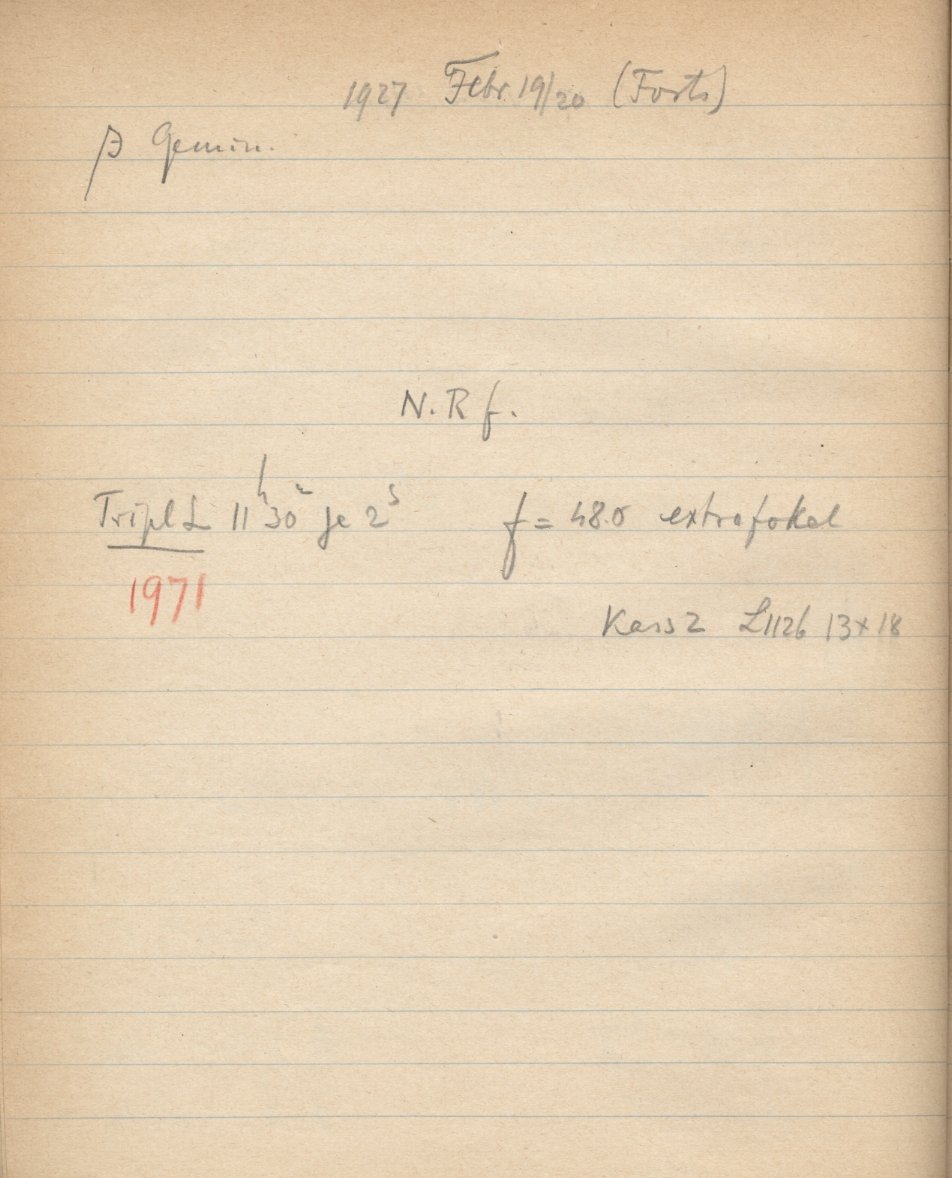 1927 Febr. 19/20 (Forts)
β Gemin.
N. R f.
Tripl L 11ʰ30ᵐ je 2ˢ f = 48.0 extrafokal
1971
Kass 2 L1126 13×18